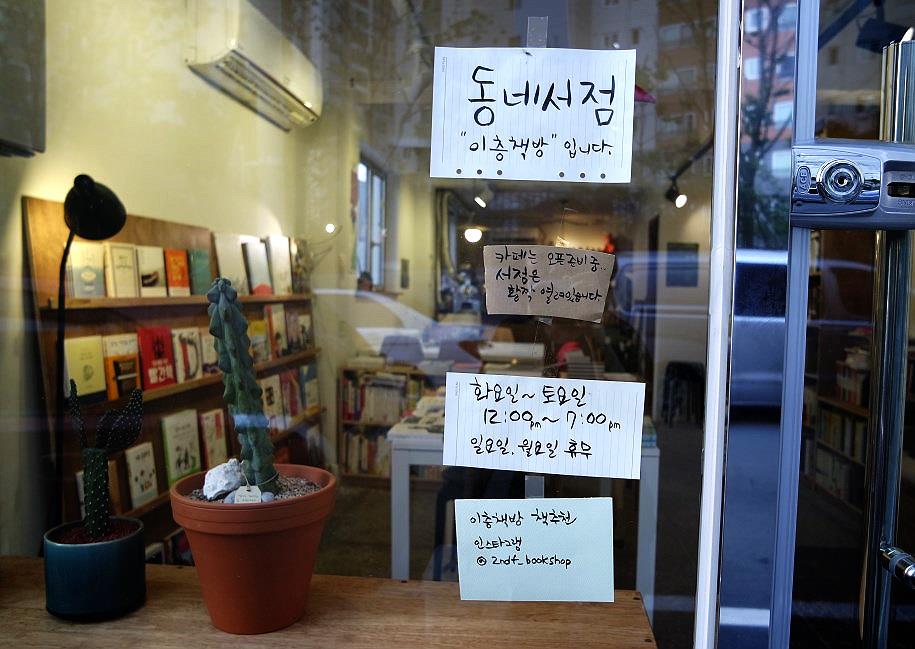 동네서점
"이층책방" 입니다.
카페는 오픈준비중..
서점은
활짝 열려있습니다
화요일~ 토요일
12:00pm~ 7:00pm
일요일, 월요일 휴무
이층책방 책추천
인스타그램
@ 2ndf_bookshop
빨간책